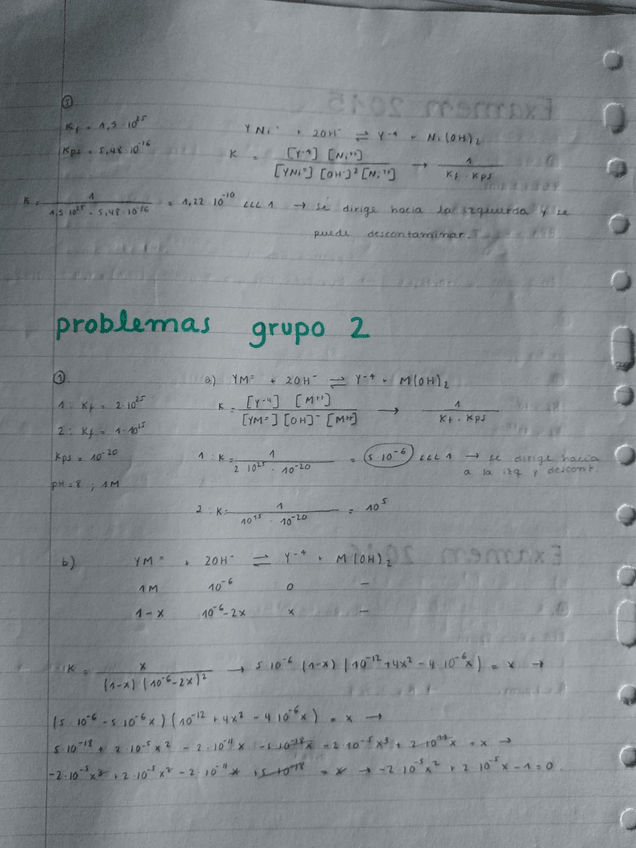 ①
Kf = 1,5·10²⁵
YNi⁼ + 20H⁻ ⇌ Y⁻⁴ + Ni(OH)₂
Kps = 5,48·10⁻¹⁶
K = [Y⁻⁴] [Ni⁺⁺] / [YNi⁼] [OH⁻]² [Ni⁺⁺] → 1 / Kf · Kps
K = 1 / 1,5 10²⁵ · 5,48·10⁻¹⁶ = 1,22·10⁻¹⁰ <<< 1 → se dirige hacia la izquierda y se
puede descontaminar.
problemas grupo 2
① a) YM⁼ + 20H⁻ ⇌ Y⁻⁴ + M(OH)₂
1: Kf = 2·10²⁵
K = [Y⁻⁴] [M⁺⁺] / [YM⁼] [OH]⁻ [M⁺⁺] → 1 / Kf · Kps
2: Kf = 1·10¹⁵
Kps = 10⁻²⁰
1: K = 1 / 2 10²⁵ · 10⁻²⁰ = 5 10⁻⁶ <<< 1 → se dirige hacia
a la izq y descont.
pH = 8 ; 1M
2: K = 1 / 10¹⁵ · 10⁻²⁰ = 10⁵
b) YM⁼ + 20H⁻ ⇌ Y⁻⁴ + M(OH)₂
1M 10⁻⁶ 0 —
1-x 10⁻⁶-2x x —
K = x / (1-x) (10⁻⁶-2x)² → 5 10⁻⁶ (1-x) (10⁻¹² + 4x² - 4 10⁻⁶x) = x →
(5 10⁻⁶ - 5 10⁻⁶x) (10⁻¹² + 4x² - 4 10⁻⁶x) = x →
5 10⁻¹⁸ + 2 10⁻⁵x² - 2·10⁻¹¹x - 5 10⁻¹⁸x - 2 10⁻⁵x³ + 2 10⁻¹¹x = x →
-2·10⁻⁵x³ + 2 10⁻⁵x² - 2·10⁻¹¹x + 5 10⁻¹⁸ = x → -2 10⁻⁵x² + 2 10⁻⁵x - 1 = 0